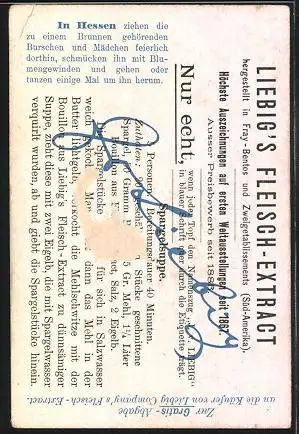 In Hessen ziehen die
zu einem Brunnen gehörenden
Burschen und Mädchen feierlich
dorthin, schmücken ihn mit Blu-
mengewinden und gehen oder
tanzen einige Mal um ihn herum.
LIEBIG'S FLEISCH-EXTRACT
hergestellt in Fray-Bentos und Zweigetablissements (Süd-Amerika).
Höchste Auszeichnungen auf ersten Weltausstellungen seit 1867.
Ausser Preisbewerb seit 1885.
Nur echt,
wenn jeder Topf den Namenszug J. v. LIEBIG
in blauer Schrift quer durch die Etiquette trägt.
Spargelsuppe.
Personen. Bereitungsdauer 40 Minuten.
Zutaten: Stücke geschnittene
Spargel, Mehl, 1½ Liter
Bouillon aus Salz, 2 Eigelb.
Spargelstücke für sich in Salzwasser
weich gekocht, dann das Mehl in der
Butter lichtgelb, verkocht die Mehlschwitze mit der
Bouillon aus Liebig's Fleisch-Extract zu dünnsämiger
Suppe, zieht diese mit zwei Eigelb, die mit Spargelwasser
verquirlt wurden, ab und giebt die Spargelstücke hinein.
Zur Gratis-Abgabe
an die Käufer von Liebig Company's Fleisch-Extract.